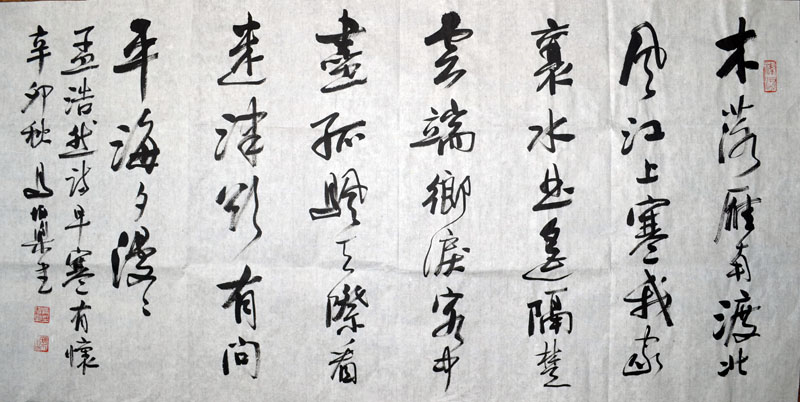 木落雁南渡北
風江上寒我家
襄水曲遙隔楚
雲端鄉淚客中
盡孤颿天際看
迷津欲有問
平海夕漫〻
孟浩然詩早寒有懷
辛卯秋馬伯樂書